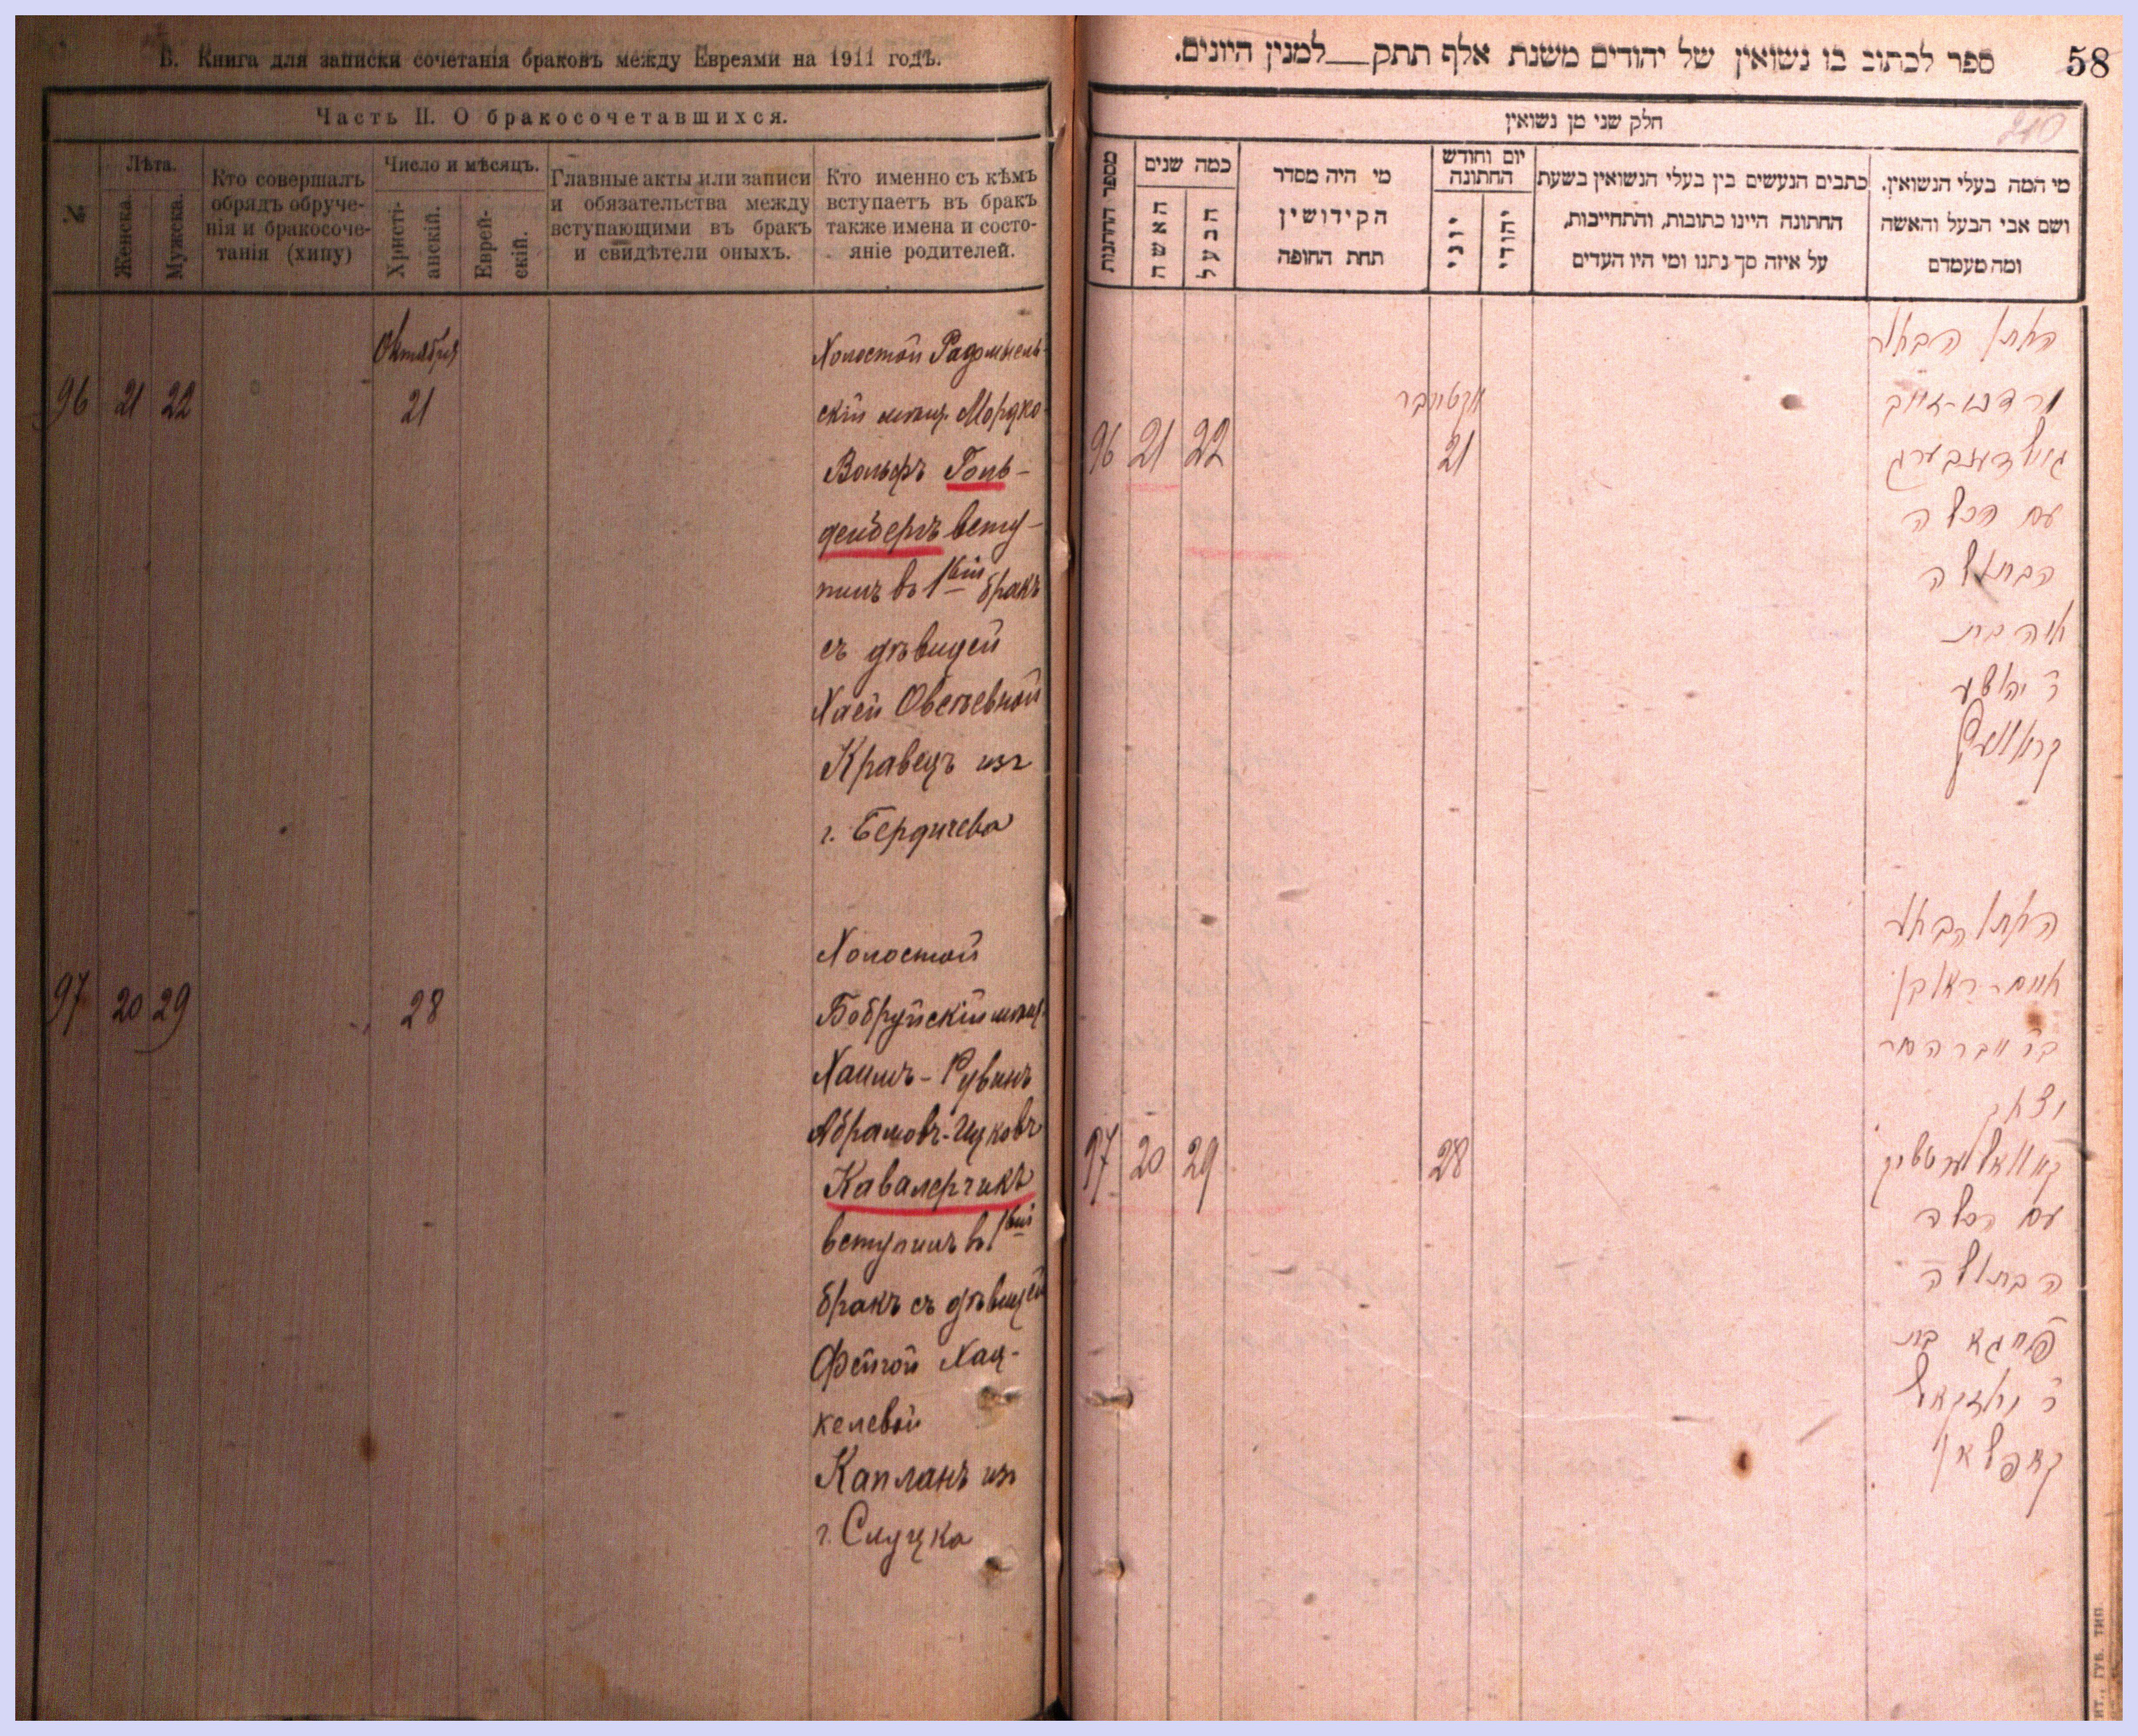 В. Книга для записки сочетанія браковъ между Евреями на 1911 годъ.
Часть II. О бракосочетавшихся.
№
Лѣта.
Женска.
Мужска.
Кто совершалъ
обрядъ обруче-
нія и бракосоче-
танія (хипу)
Число и мѣсяцъ.
Христі-
анскій.
Еврей-
скій.
Главные акты или записи
и обязательства между
вступающими въ бракъ
и свидѣтели оныхъ.
Кто именно съ кѣмъ
вступаетъ въ бракъ
также имена и состо-
яніе родителей.
96 21 22
Октября
21
Холостой Радомысль-
скій мѣщ. Мордко-
Вольфъ Голь-
денбергъ всту-
пилъ въ 1вый бракъ
съ дѣвицей
Хаей Овсѣевной
Кравецъ изъ
г. Бердичева
97 20 29
28
Холостой
Бобруйскій мѣщ.
Хаимъ-Рувинъ
Абрамовъ-Ицковъ
Кавалерчикъ
вступилъ въ 1вый
бракъ съ дѣвицей
Фейгой Хац-
келевой
Капланъ изъ
г. Слуцка
58
ספר לכתוב בו נשואין של יהודים משנת אלף תתק__למנין היונים.
210
חלק שני מן נשואין
מספר החתונות
כמה שנים
האשה
הבעל
מי היה מסדר
הקידושין
תחת החופה
יום וחודש
החתונה
יוני
יהודי
כתבים הנעשים בין בעלי הנשואין בשעת
החתונה היינו כתובות, והתחייבות,
על איזה סך נתנו ומי היו העדים
מי המה בעלי הנשואין.
ושם אבי הבעל והאשה
ומה מעמדם
96 21 22
אקטיובר
21
החתן הבחור
גאלדענבערג
עם הכלה
הבתולה
חיה בת
ר יהושע
קראוועץ
97 20 29
28
החתן הבחור
חיים ראובן
בר אברהם
יצחק
קאוואלערטשיק
עם הכלה
הבתולה
פייגא בת
ר יחזקאל
קאפלאן
ИТ., ГУБ. ТИП.